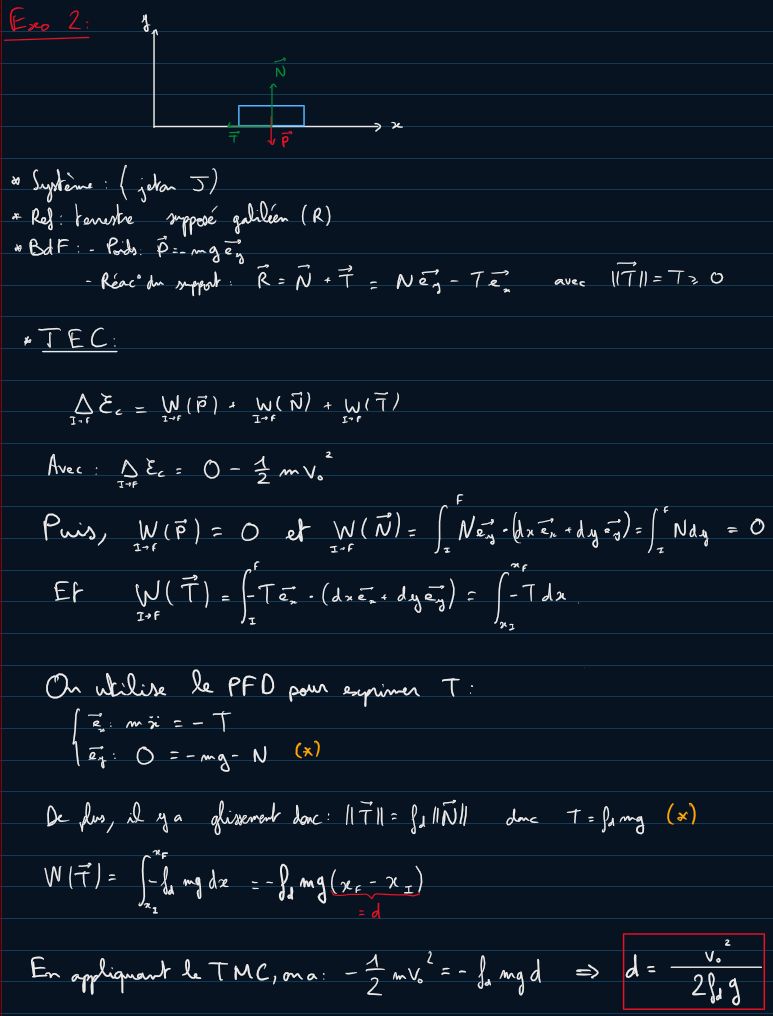 Exo 2:
y
N⃗
T⃗ P⃗ x
* Système : { jeton J }
* Ref : terrestre supposé galiléen (R)
* BdF : - Poids : P⃗ = -mg e⃗_y
- Réac° du support : R⃗ = N⃗ + T⃗ = N e⃗_y - T e⃗_x avec ||T⃗|| = T ≥ 0
* TEC :
Δ_{I→F} Ec = W_{I→F}(P⃗) + W_{I→F}(N⃗) + W_{I→F}(T⃗)
Avec : Δ_{I→F} Ec = 0 - 1/2 m v₀²
Puis, W_{I→F}(P⃗) = 0 et W_{I→F}(N⃗) = ∫_I^F N e⃗_y · (dx e⃗_x + dy e⃗_y) = ∫_I^F N dy = 0
Et W_{I→F}(T⃗) = ∫_I^F -T e⃗_x · (dx e⃗_x + dy e⃗_y) = ∫_{x_I}^{x_F} -T dx.
On utilise le PFD pour exprimer T :
{ e⃗_x : m ẍ = - T
e⃗_y : 0 = - mg - N (*)
De plus, il y a glissement donc : ||T⃗|| = f_d ||N⃗|| donc T = f_d mg (*)
W(T⃗) = ∫_{x_I}^{x_F} -f_d mg dx = -f_d mg (x_F - x_I)
= d
En appliquant le TMC, on a : - 1/2 m v₀² = - f_d mg d ⇒ d = v₀² / 2 f_d g